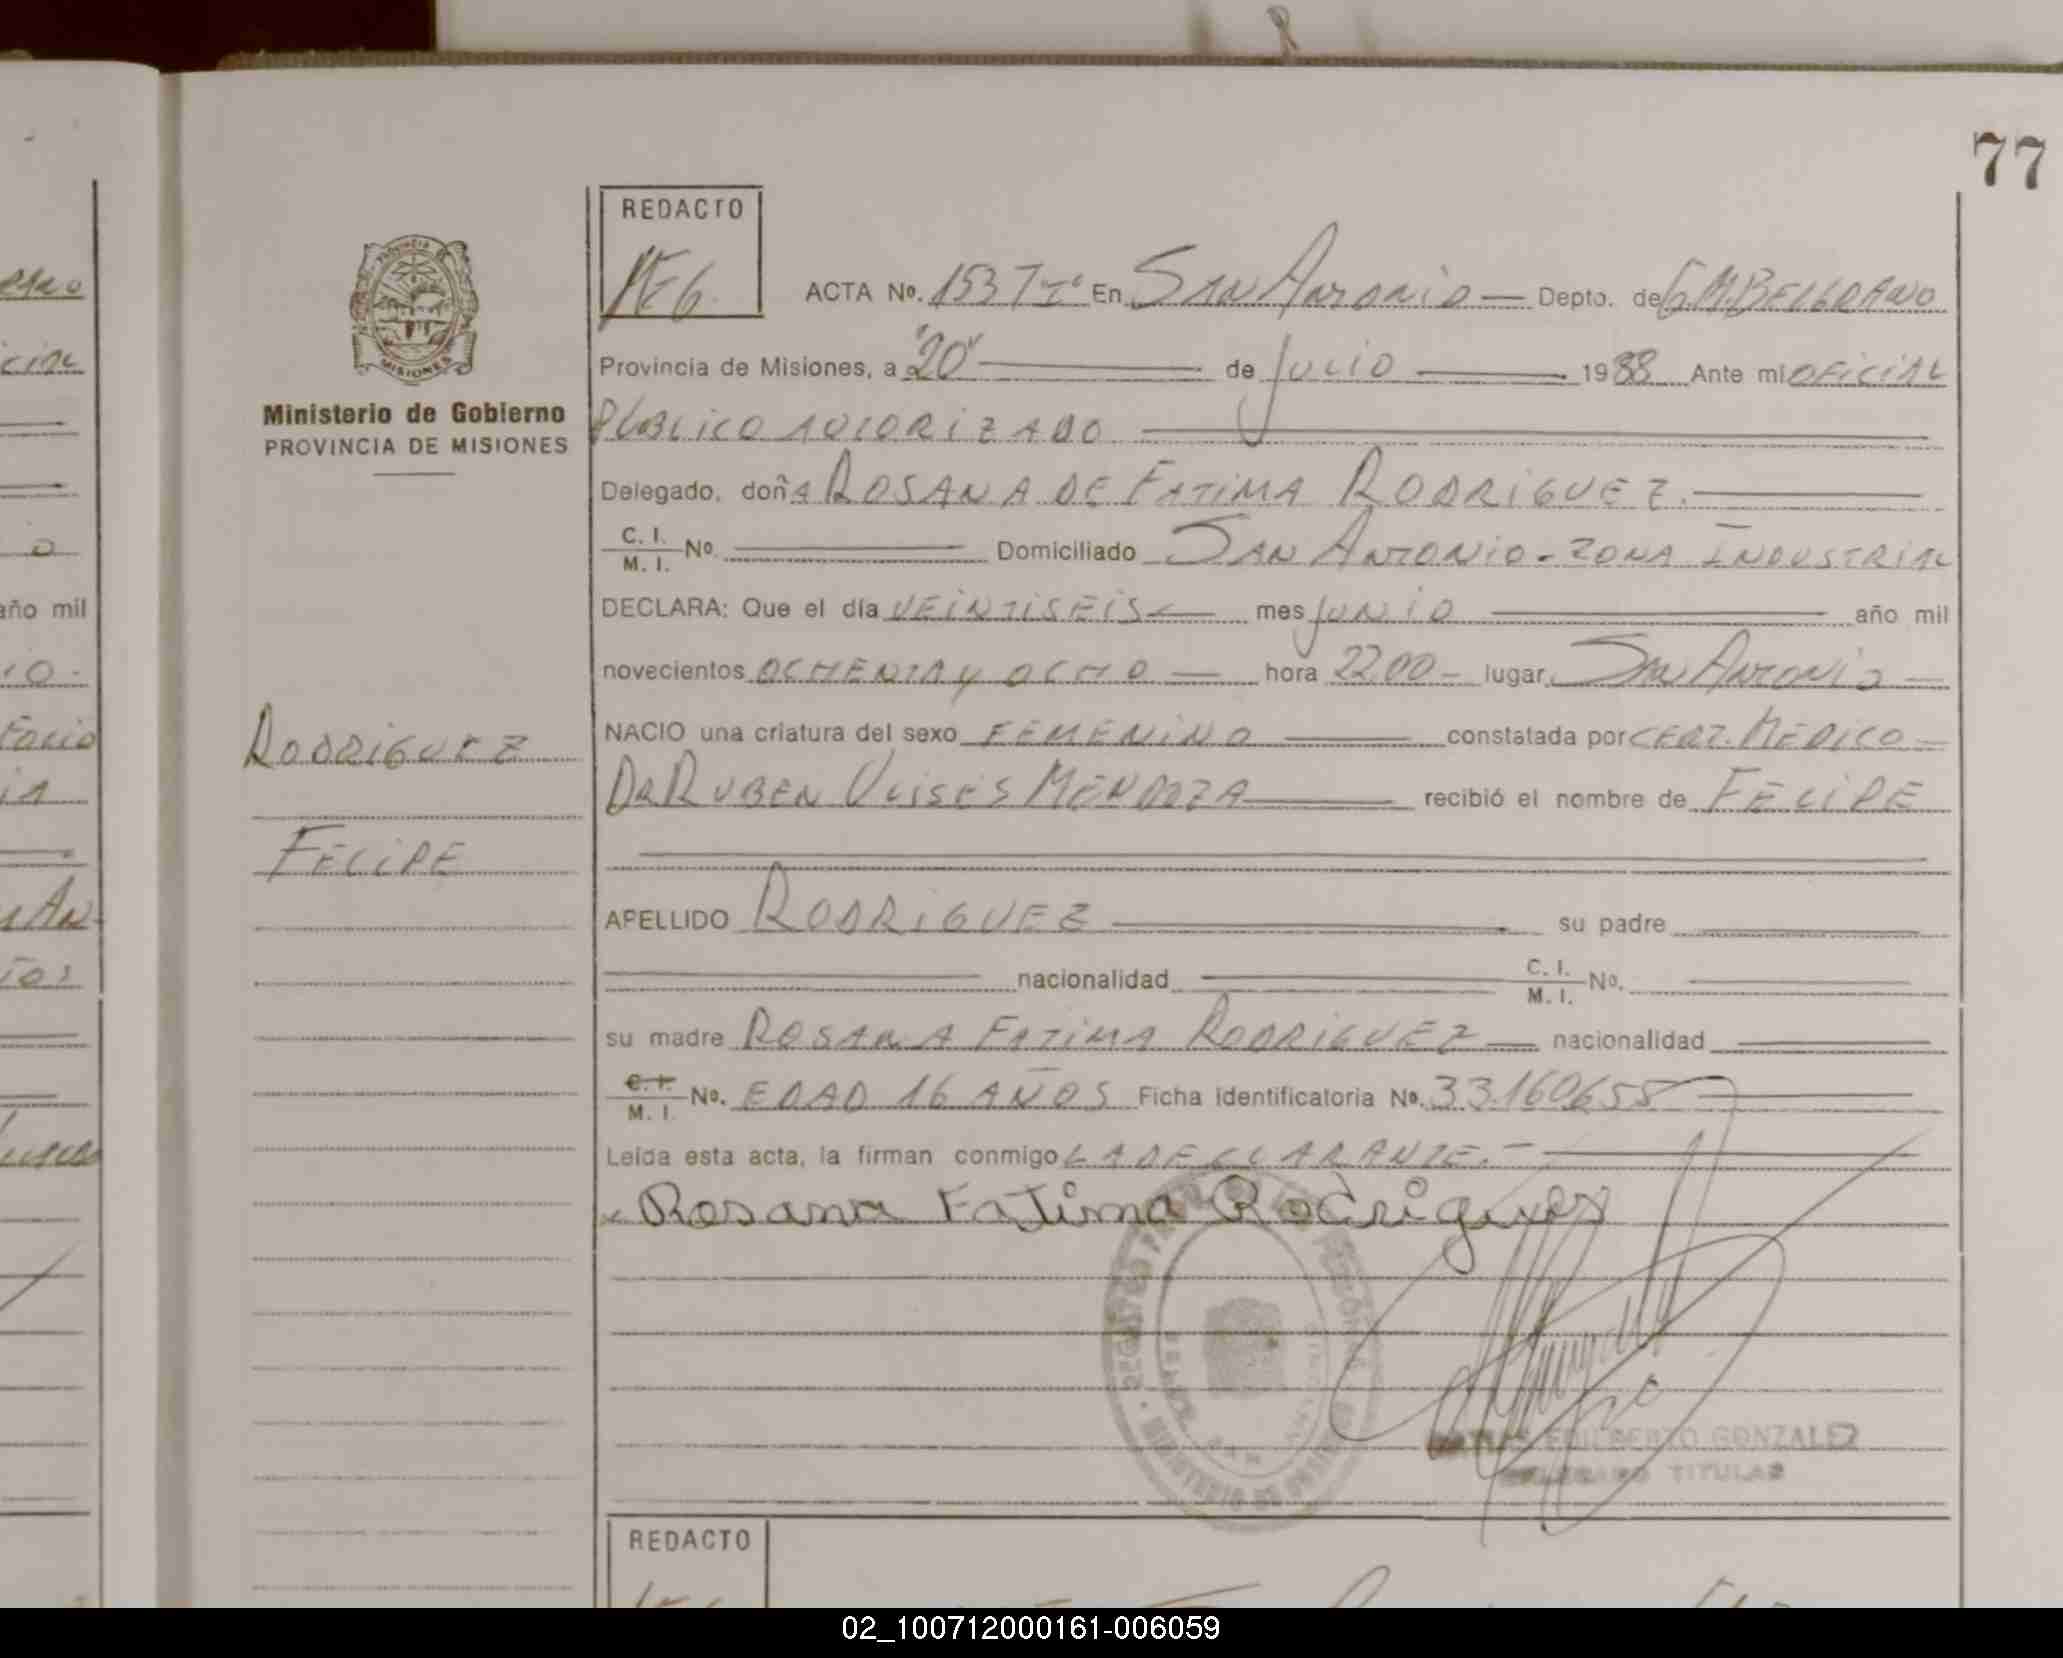 77
REDACTO
PROVINCIA DE
MISIONES
Ministerio de Gobierno
PROVINCIA DE MISIONES
ACTA No. 153 Tº Iº En SAN ANTONIO Depto. de G.M.BELGRANO
Provincia de Misiones, a "20" de JULIO 1988 Ante mi OFICIAL
PUBLICO AUTORIZADO
Delegado, doña ROSANA DE FATIMA RODRIGUEZ.
C. I. M. I. No. Domiciliado SAN ANTONIO - ZONA INDUSTRIAL
DECLARA: Que el día VEINTISEIS mes JUNIO año mil
novecientos OCHENTA y OCHO hora 22,00 - lugar SAN ANTONIO
NACIO una criatura del sexo FEMENINO constatada por CERT. MEDICO
DR RUBEN ULISES MENDOZA recibió el nombre de FELIPE
RODRIGUEZ
FELIPE
APELLIDO RODRIGUEZ su padre
nacionalidad C. I. M. I. No.
su madre ROSANA FATIMA RODRIGUEZ nacionalidad
C. I. M. I. No. EDAD 16 AÑOS Ficha identificatoria No. 33.160.655
Leída esta acta, la firman conmigo LA DECLARANTE.-
Rosana Fatima Rodriguez
EDILBERTO GONZALEZ
DELEGADO TITULAR
REDACTO
año mil
02_100712000161-006059